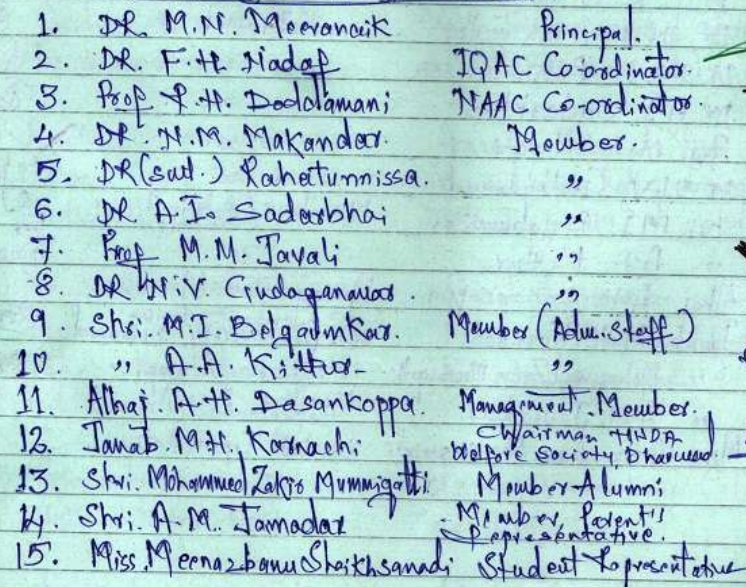 1. DR. M.N. Meeranaik Principal.
2. DR. F.H. Nadaf IQAC Co-ordinator.
3. Prof P.H. Doddamani NAAC Co-ordinator.
4. DR. N.M. Makandar. Member.
5. DR(smt.) Rahatunnissa. "
6. DR. A.I. Sadarbhai "
7. Prof M.M. Javali "
8. DR N.V. Gudaganavar. "
9. Shri. M.I. Belgaumkar. Member (Adm. Staff)
10. " A.A. Kittur "
11. Alhaj. A.H. Dasankoppa. Management Member.
12. Janab. M.H. Karnachi Chairman HNDA
Welfare Society, Dharwad
13. Shri. Mohammed Zakir Mummigatti Member Alumni
14. Shri. A.M. Jamadar Member, Parent's
Representative.
15. Miss. Meenazbanu Shaikhsanadi Student Representative